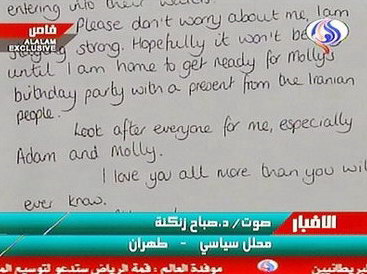 entering into their waters.
Please don't worry about me, I am
staying strong. Hopefully it won't be
until I am home to get ready for Molly's
birthday party with a present from the Iranian
people.
Look after everyone for me, especially
Adam and Molly.
I love you all more than you will
ever know.
خاص
ALALAM
EXCLUSIVE
الاخبار
صوت/ د.صباح زنكنة
محلل سياسي - طهران
موفدة العالم : قمة الرياض ستدعو لتوسيع